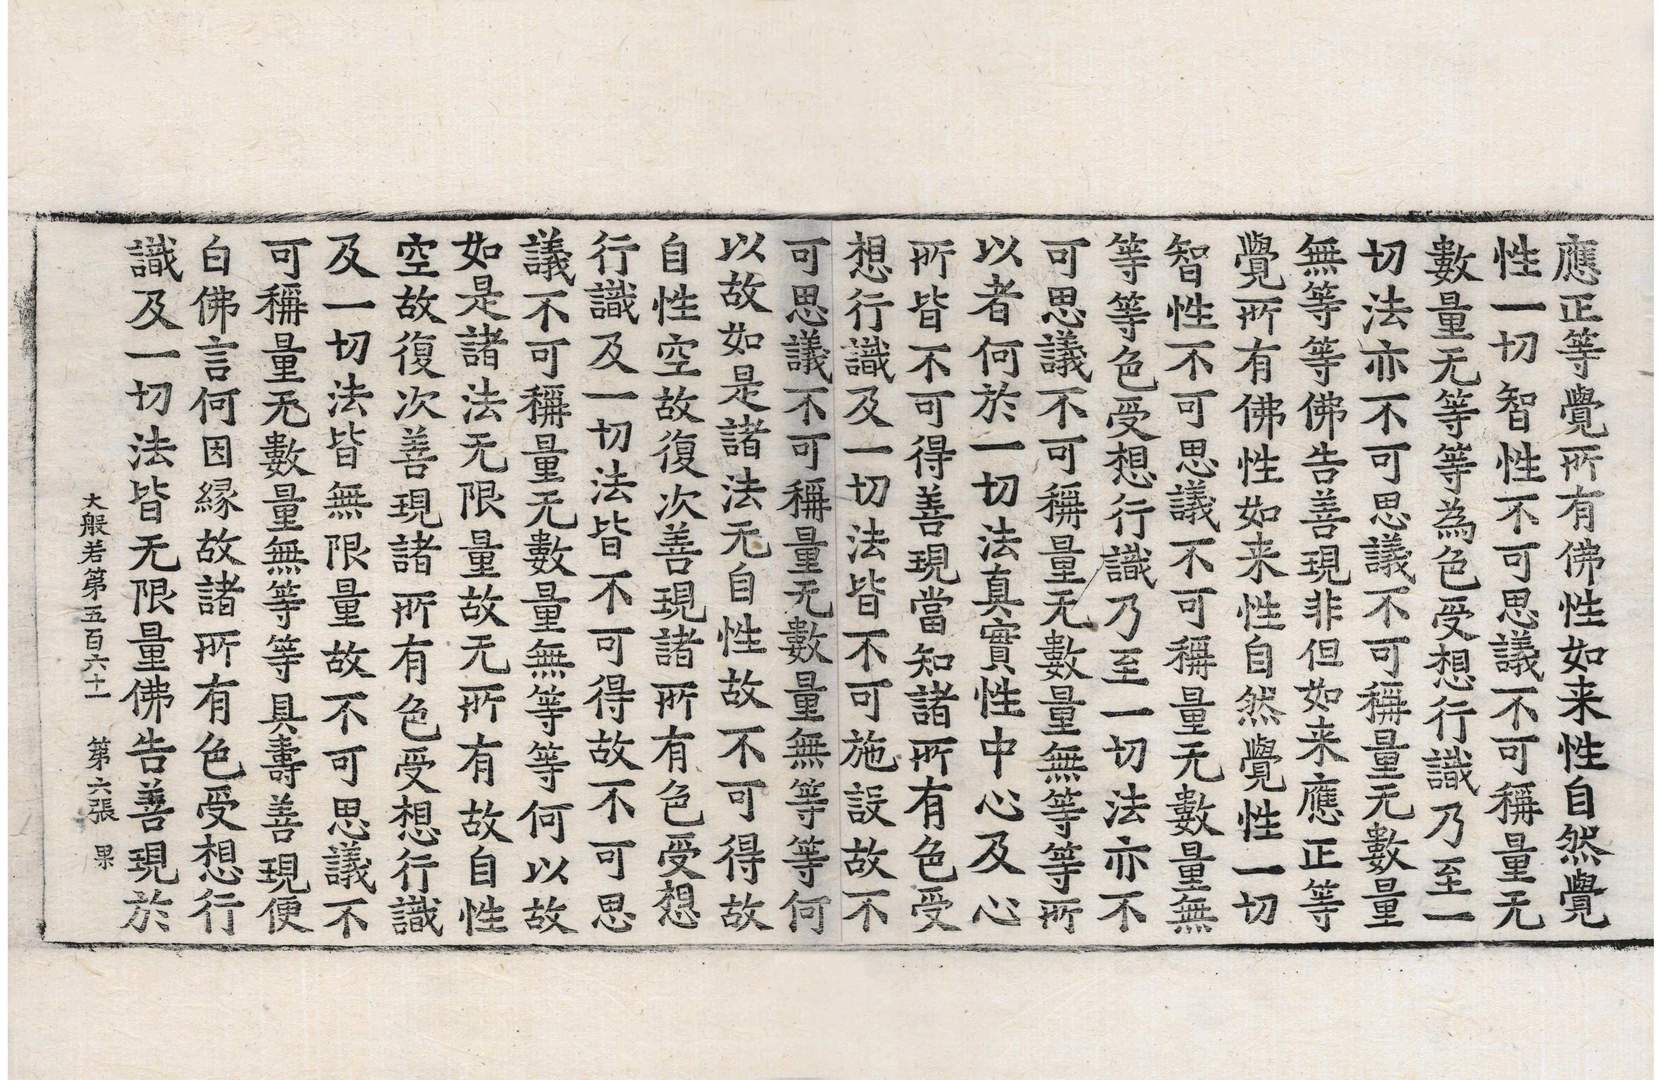 應正等覺所有佛性如来性自然覺
性一切智性不可思議不可稱量无
數量无等等為色受想行識乃至一
切法亦不可思議不可稱量无數量
無等等佛告善現非但如来應正等
覺所有佛性如来性自然覺性一切
智性不可思議不可稱量无數量無
等等色受想行識乃至一切法亦不
可思議不可稱量无數量無等等所
以者何於一切法真實性中心及心
所皆不可得善現當知諸所有色受
想行識及一切法皆不可施設故不
可思議不可稱量无數量無等等何
以故如是諸法无自性故不可得故
自性空故復次善現諸所有色受想
行識及一切法皆不可得故不可思
議不可稱量无數量無等等何以故
如是諸法无限量故无所有故自性
空故復次善現諸所有色受想行識
及一切法皆無限量故不可思議不
可稱量无數量無等等具壽善現便
白佛言何因縁故諸所有色受想行
識及一切法皆无限量佛告善現於
大般若第五百六十一 第六張 果